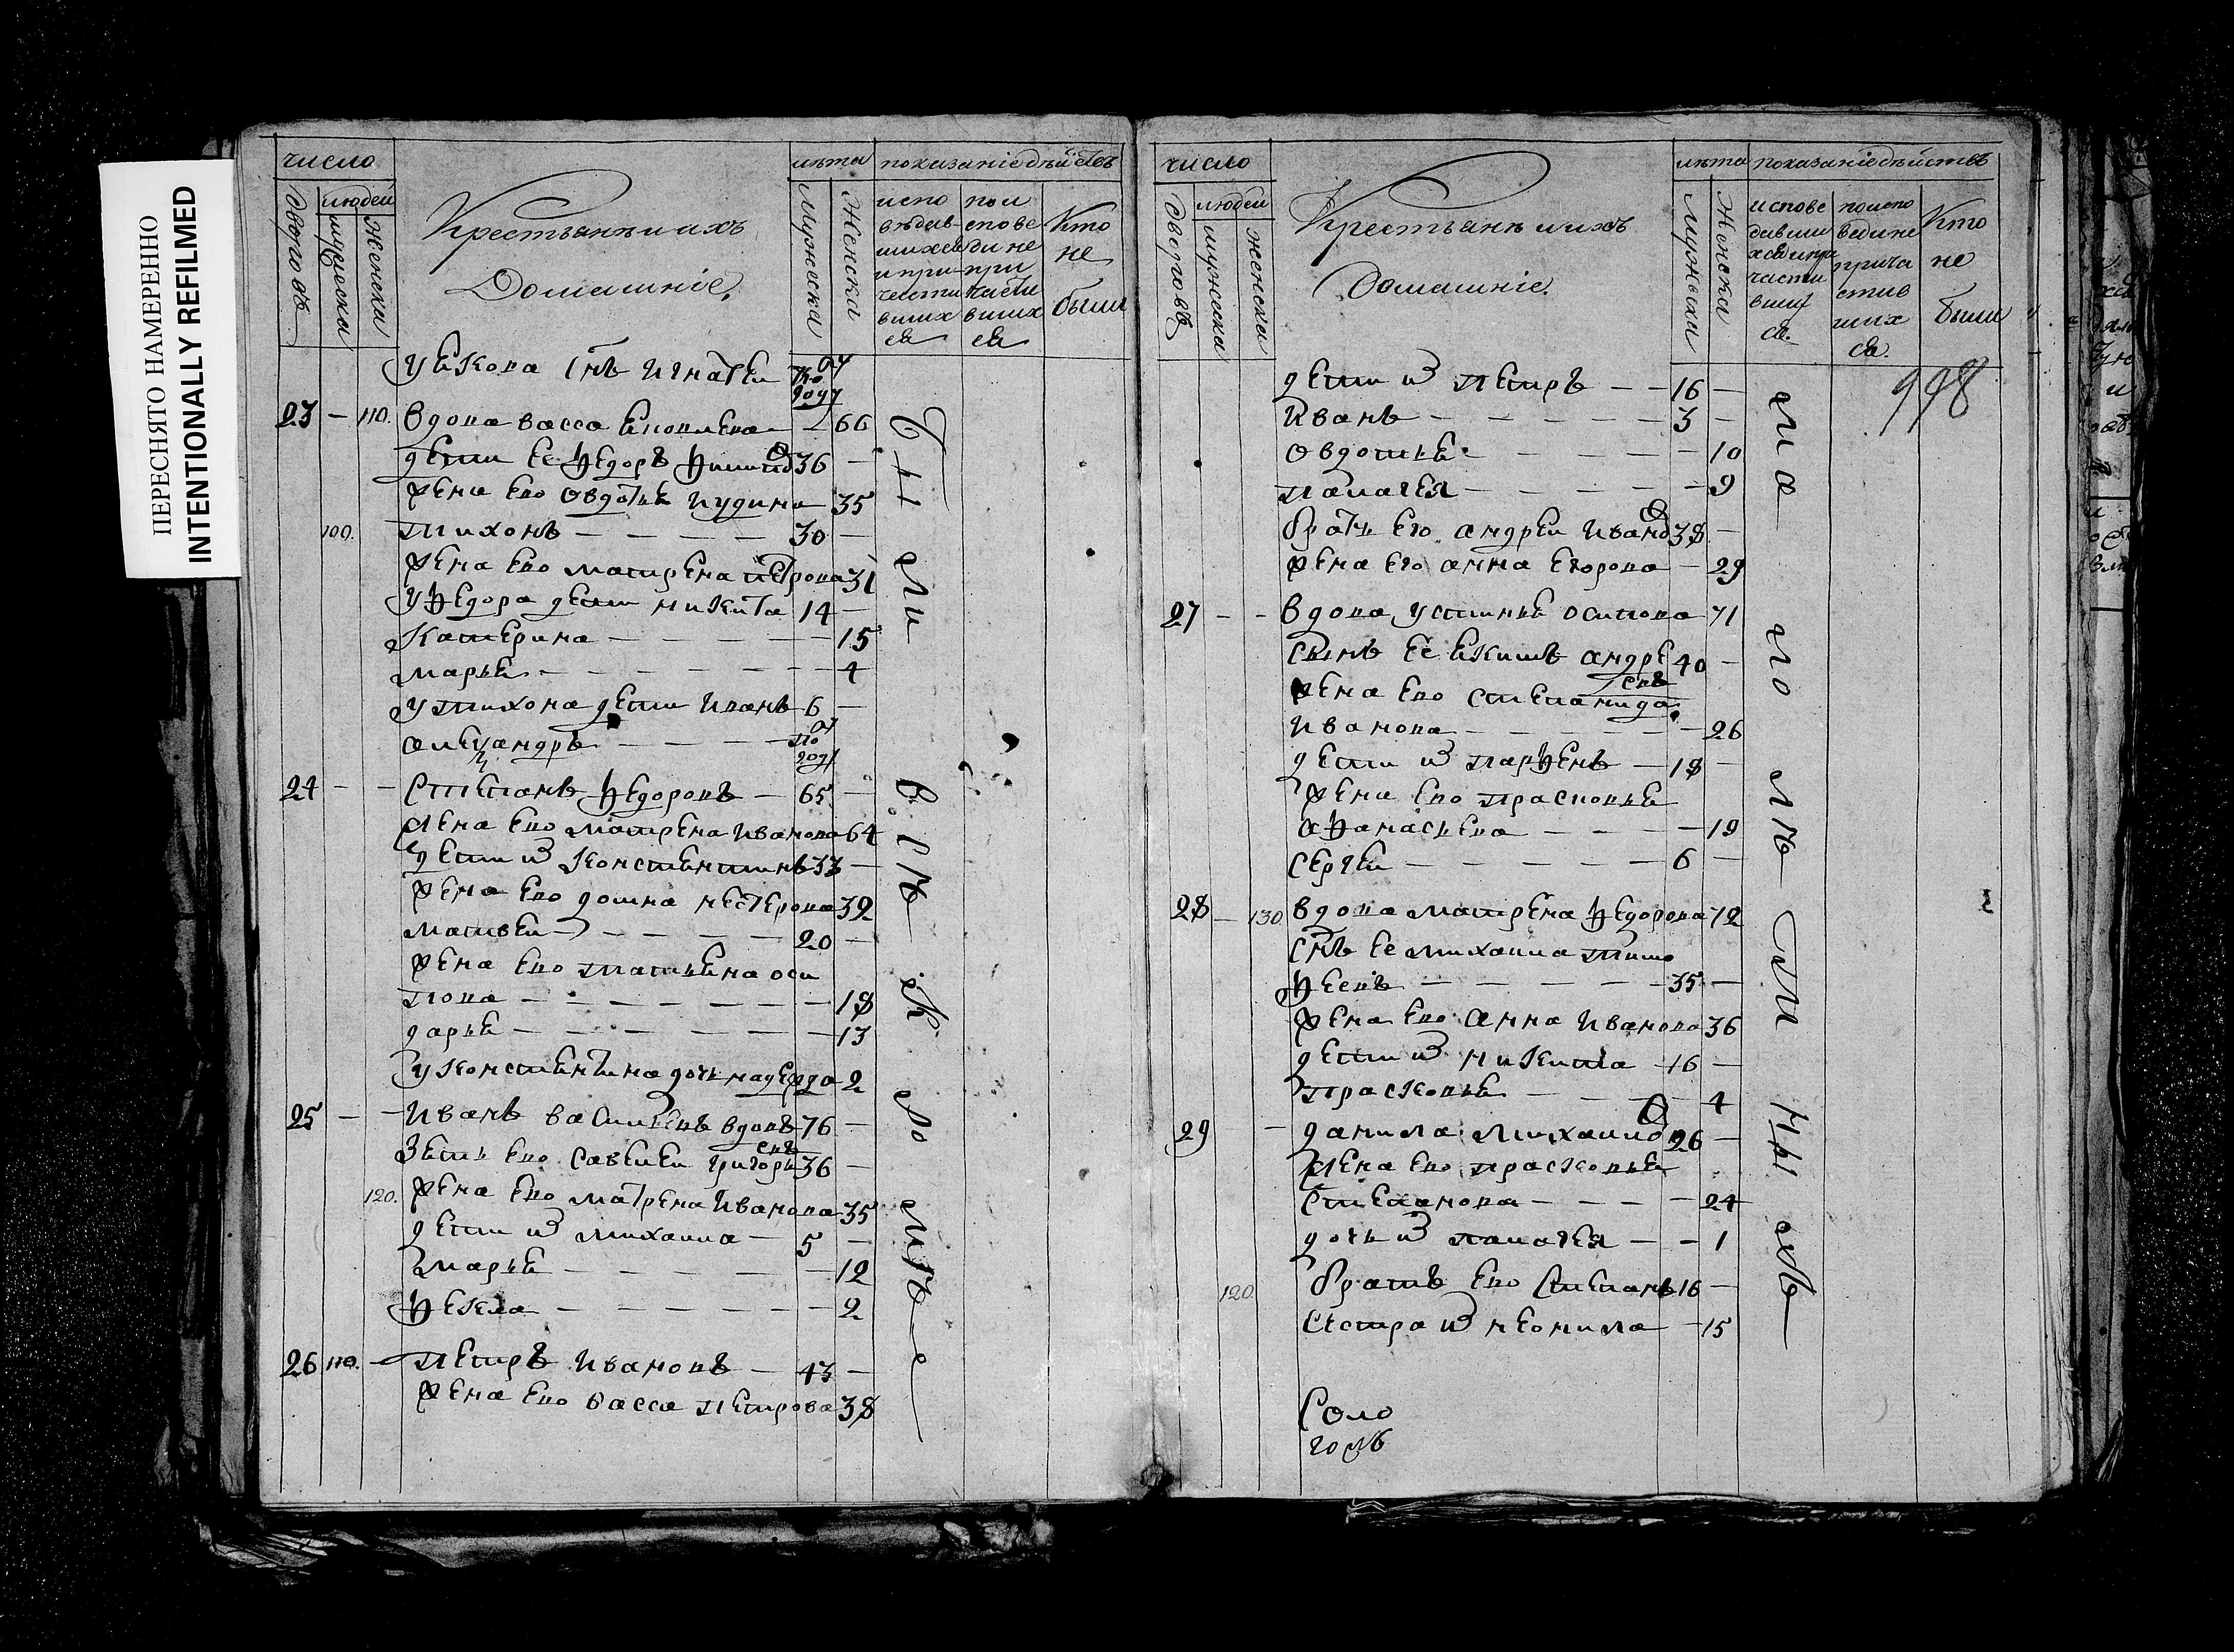 ПЕРЕСНЯТО НАМЕРЕННО
INTENTIONALLY REFILMED
число
людей
лѣта
показаніе дѣйствъ
мужеска
женска
Крестьянѣ и ихъ
Домашніе.
Мужеска
Женска
испо
вѣдав
шихся
и при
части
вших
ся
по и
спове
ди не
при
части
вших
ся
Кто
не
были
у Якова снъ Игнатеи по 2 году
23 — 110. вдова васса Яковлева — 66
дети ее Ѳедоръ 36 —
жена ево овдотья иудина 35
100. Тихонъ — 30 —
жена ево матрена петрова 31
у Ѳедора дети никита 14 —
Катерина — 15
марья — 4
у тихона дети иванъ 6 —
алеѯандръ — по 2 году
24 — — Степанъ Ѳедоровъ — 65 —
жена ево матрена Иванова 64
дети их Констентинъ 33 —
жена ево домна нестерова 32
матвеи — 20 —
жена ево татьяна оси
пова — 18
дарья — 13
у Констентина дочь надежда 2
25 — — Иванъ васильевъ вдовъ 76 —
Зять ево савелеи григорьевъ 36 —
120. жена ево матрена Иванова 35
дети их михаила — 5 —
марья — 12
Ѳекла — 2
26 110. — петръ Ивановъ — 43 —
жена ево васса петрова 38
Были всѣ како мѣ
число
людей
лѣта
показаніе дѣйствъ
мужеска
женска
Крестьянѣ и ихъ
Домашніе.
Мужьска
Женска
испове
давши
хся и при
части
вших
ся.
по испо
веди не
прича
стив
ших
ся.
Кто
не
были
998
дети их петръ — 16 —
Иванъ — 3 —
овдотья — 10
палагея — 9
братъ его андреи Иванов 38 —
жена его анна егорова — 29
27 — — вдова устинья осипова 71
сынъ ее Якимъ андреевъ 40 —
жена ево степанида
Иванова — 26
дети их парѲенъ — 18 —
жена ево прасковья
аѲанасьева — 19
сергеи — 6 —
28 — 130. вдова матрена Ѳедорова 72
снъ ее михаила тимо
Ѳеевъ — 35 —
жена ево анна Иванова 36
дети их никита — 16 —
прасковья — 4
29 — данила михаилов 26 —
жена ево прасковья
Степанова — 24
дочь их палагея — 1
120. братъ ево Степанъ 16 —
сестра их неонила — 15
Соло